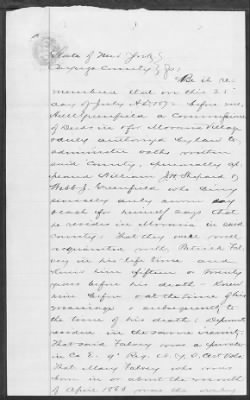 State of New York
Cayuga County } SS:
Be it re-
membered that on this 25
day of July A.D. 187 before me,
Greenfield a Commissioner
of Deeds in & for Moravia Village
duly authorized by law to
administer oaths within
said County, personally ap-
peared William H. Shepard &
Webb J. Greenfield who being
severally duly sworn say
each for himself says that
he resides in Moravia in said
County: That they well
acquainted with Patrick Fal-
vey in his life time and
knew him fifteen or twenty
years before his death - Knew
him before & at the time of his
marriage & subsequently to
the time of his death: Deponent
resided in the same vicinity:
That said Falvey was a private
in Co E. 9" Reg. N.Y. Vols
That Mary Falvey who was
born in or about the month
of April 1863 was the only